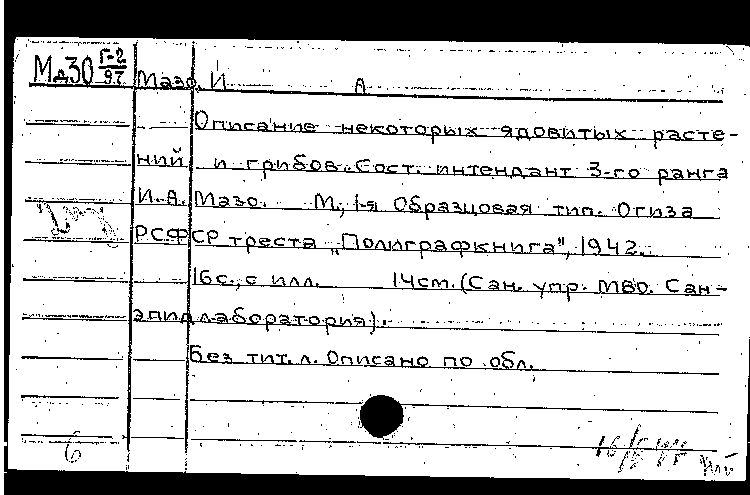 МдЗО Г-2/97 Мазо, И А
Описание некоторых ядовитых расте-
ний и грибов. Сост. интендант 3-го ранга
И.А. Мазо. М., 1-я Образцовая тип. Огиза
РСФСР треста „Полиграфкнига", 1942.
16с., с илл. 14см. (Сан. упр. МВО. Сан-
эпидлаборатория).
Без тит. л. Описано по обл.
6